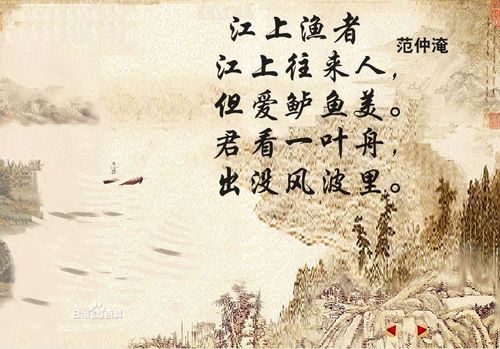 江上渔者
范仲淹
江上往来人，
但爱鲈鱼美。
君看一叶舟，
出没风波里。
Baidu百科